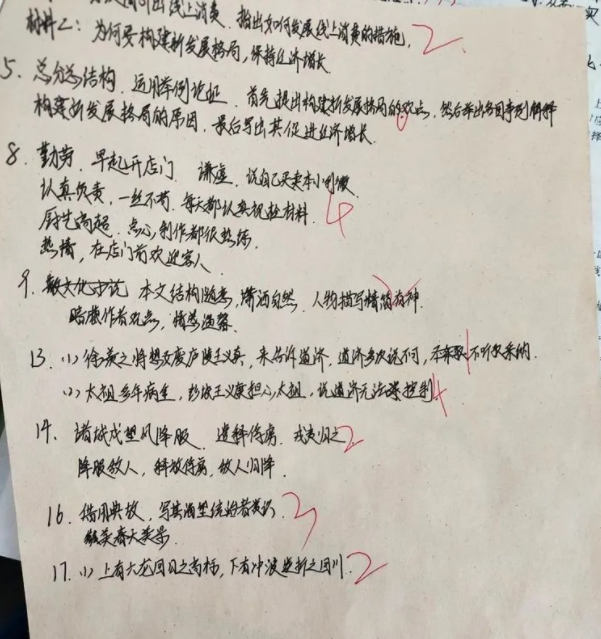 指出如何发展线上消费的措施. 2
材料二: 为何要构建新发展格局, 保持经济增长
5. 总分总结构. 运用举例论证. 首先提出构建新发展格局的观点, 然后举出各国事例解释
构建新发展格局的原因. 最后写出其促进经济增长.
8. 勤劳, 早起开店门 谦虚, 说自己买卖本小利微
认真负责, 一丝不苟. 每天都认真视检材料 4
厨艺高超. 点心制作都很熟练.
热情, 在店门前欢迎客人
9. 散文化小说 本文结构随意, 潇洒自然. 人物描写精简有神
暗藏作者观点, 情景
13. (1) 徐羡之将想废庐陵王义真, 来告诉道济, 道济多次说不同, 不采纳. 1
(2) 太祖多年病重, 彭城王义康担心太祖, 说道济无法控制 4
14. 诸城戍望风降服. 遣释俘虏. 戎夷归之 2
降服敌人, 释放俘虏, 敌人归降.
16. 借用典故, 写其渴望统治者赏识 3
17. (1) 上有六龙回日之高标, 下有冲波逆折之回川. 2